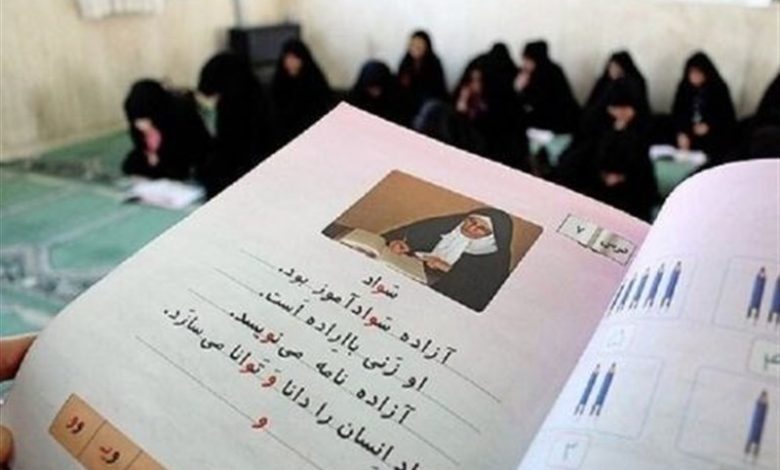 درس ۷
سَواد
آزاده سَوادآموز بود.
او زَنی بااِراده اَست.
آزاده نامه می‌نویسد.
اِنسان را دانا وَ تَوانا می‌سازَد.
و
و و
۲